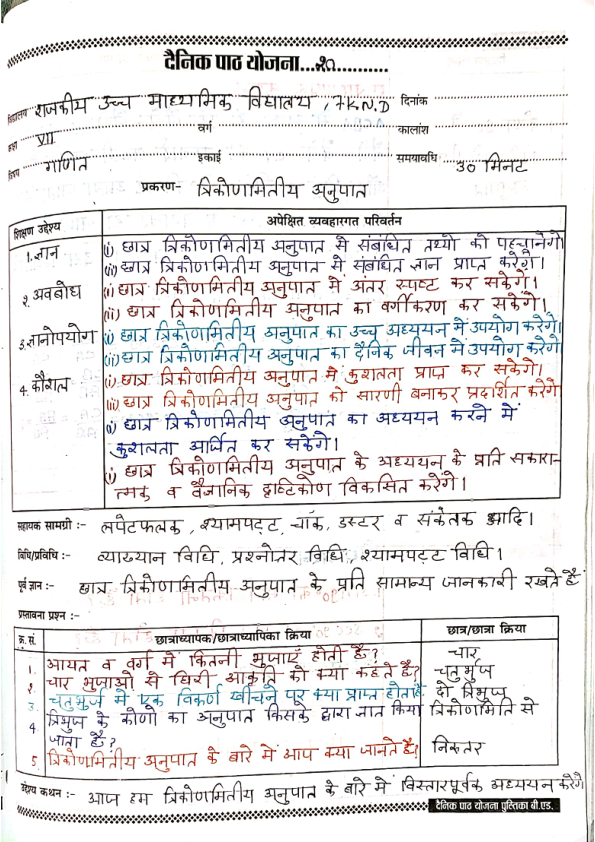 दैनिक पाठ योजना...20..........
विद्यालय राजकीय उच्च माध्यमिक विद्यालय, 7K.N.D दिनांक
कक्षा VII वर्ग कालांश
विषय गणित इकाई समयावधि 30 मिनट
प्रकरण- त्रिकोणमितीय अनुपात
शिक्षण उद्देश्य अपेक्षित व्यवहारगत परिवर्तन
1. ज्ञान (i) छात्र त्रिकोणमितीय अनुपात से संबंधित तथ्यो को पहचानेगे।
(ii) छात्र त्रिकोणमितीय अनुपात से संबंधित ज्ञान प्राप्त करेंगे।
2. अवबोध (i) छात्र त्रिकोणमितीय अनुपात में अंतर स्पष्ट कर सकेगें।
(ii) छात्र त्रिकोणमितीय अनुपात का वर्गीकरण कर सकेगें।
3. ज्ञानोपयोग (i) छात्र त्रिकोणमितीय अनुपात का उच्च अध्ययन में उपयोग करेगें।
(ii) छात्र त्रिकोणमितीय अनुपात का दैनिक जीवन में उपयोग करेगें
4. कौशल (i) छात्र त्रिकोणमितीय अनुपात में कुशलता प्राप्त कर सकेगे।
(ii) छात्र त्रिकोणमितीय अनुपात को सारणी बनाकर प्रदर्शित करेगें
(i) छात्र त्रिकोणमितीय अनुपात का अध्ययन करने में
कुशलता अर्जित कर सकेगे।
(i) छात्र त्रिकोणमितीय अनुपात के अध्ययन के प्रति सकारा-
त्मक व वैज्ञानिक दृष्टिकोण विकसित करेगें।
सहायक सामग्री :- लपेटफलक, श्यामपट्ट, चॉक, डस्टर व संकेतक आदि।
विधि/प्रविधि :- व्याख्यान विधि, प्रश्नोतर विधि, श्यामपट्ट विधि।
पूर्व ज्ञान :- छात्र त्रिकोणमितीय अनुपात के प्रति सामान्य जानकारी रखते हैं
प्रस्तावना प्रश्न :-
क्र. सं. छात्राध्यापक/छात्राध्यापिका क्रिया छात्र/छात्रा क्रिया
1. आयत व वर्ग में कितनी भुजाएँ होती हैं? चार
2. चार भुजाओं से घिरी आकृति को क्या कहते हैं? चतुर्भुज
3. चतुर्भुज में एक विकर्ण खींचने पर क्या प्राप्त होता है दो त्रिभुज
4. त्रिभुज के कोणो का अनुपात किसके द्वारा ज्ञात किया त्रिकोणमिति से
जाता है?
5. त्रिकोणमितीय अनुपात के बारे में आप क्या जानते हैं? निरुतर
उद्देश्य कथन :- आज हम त्रिकोणमितीय अनुपात के बारे में विस्तारपूर्वक अध्ययन करेगें
दैनिक पाठ योजना पुस्तिका बी.एड.